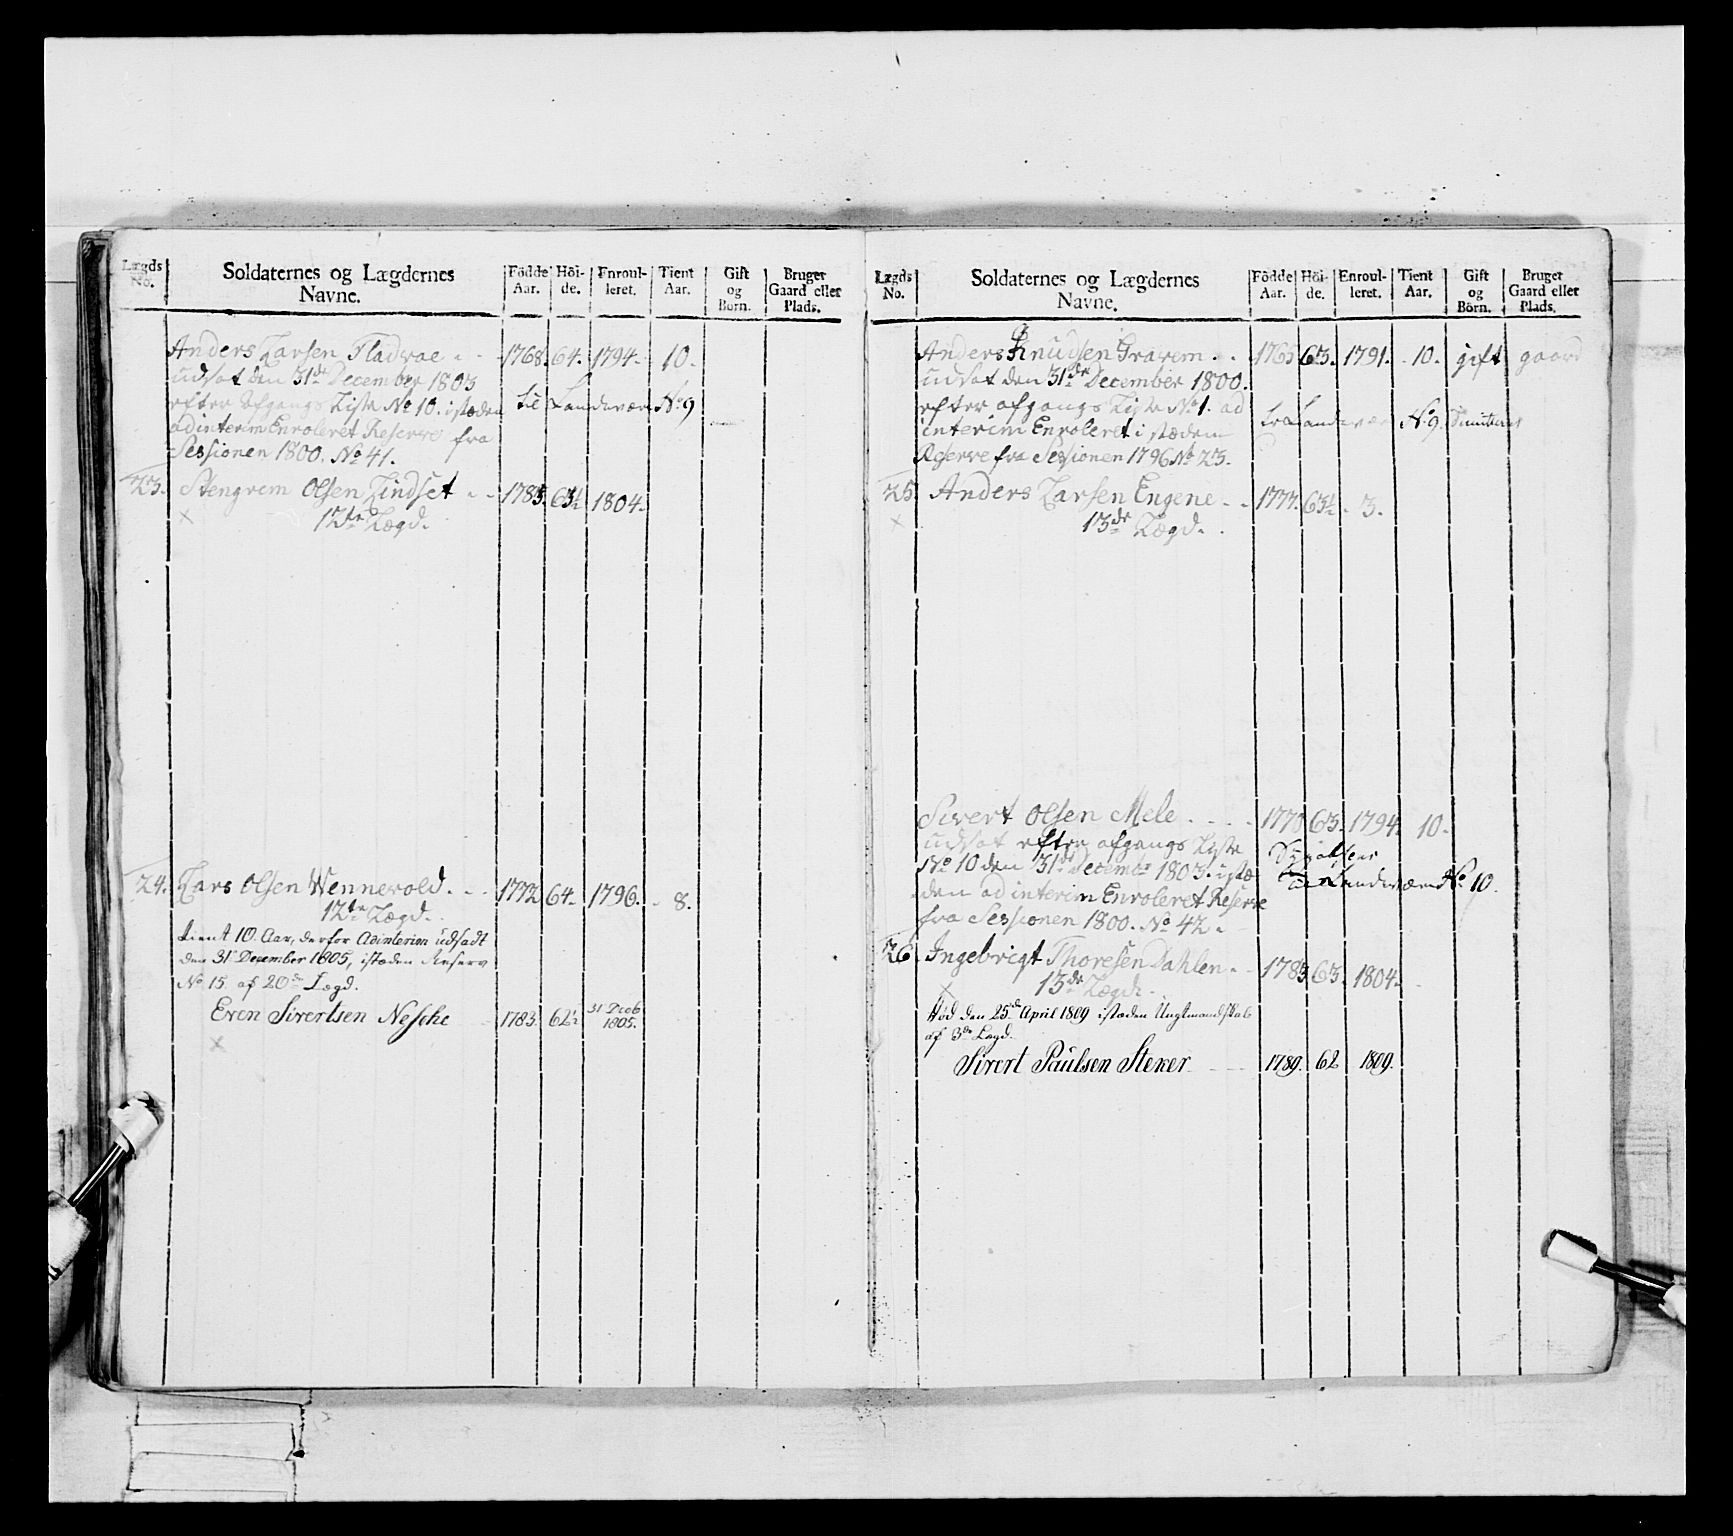 Lægds No. Soldaternes og Lægdernes Navne. Födde Aar. Höi-de. Enroul-leret. Tient Aar. Gift og Börn. Bruger Gaard eller Plads.
Anders Larsen Fladvae 1768. 64. 1794. 10.
udsat den 31de December 1803
efter Afgangs Liste No 10. istæden til Landeværn No 9
ad interim Enroleret Reserve fra
Sessionen 1800. No 41.
23. Stengrim Olsen Lindset 1785. 63½ 1804.
12de Lægd.
24. Lars Olsen Wennevold. 1772 64. 1796. 8.
12de Lægd.
tient 10 Aar, derfor Adinterim udsadt
den 31te December 1805, istæden Reserv
No 15 af 20de Lægd.
Even Sivertsen Nesche 1783. 62½ 31 Decb 1805.
Lægds No. Soldaternes og Lægdernes Navne. Födde Aar. Höi-de. Enroul-leret. Tient Aar. Gift og Börn. Bruger Gaard eller Plads.
Anders Knudsen Gravem 1765 63. 1791. 10. gift gaard
udsat den 31de December 1800.
efter afgangs Liste No 1. ad
interim Enroleret i stæden No 9.
Reserve fra Sessionen 1796 No 23.
25. Anders Larsen Engene 1777. 63½ 3.
13de Lægd.
Sivert Olsen Mele 1770 63. 1794. 10.
udsat efter afgangs Liste
No 10 den 31de Decembr 1803. istæ-
den ad interim Enroleret Reserve Landeværn No 10.
fra Sessionen 1800. No 42.
26. Ingebrigt Thoresen Dahlen 1783 63. 1804.
13de Lægd.
død den 25de April 1809 istæden Ungtmandskab
af 3de Lægd.
Sivert Paulsen Steker 1789. 62 1809.